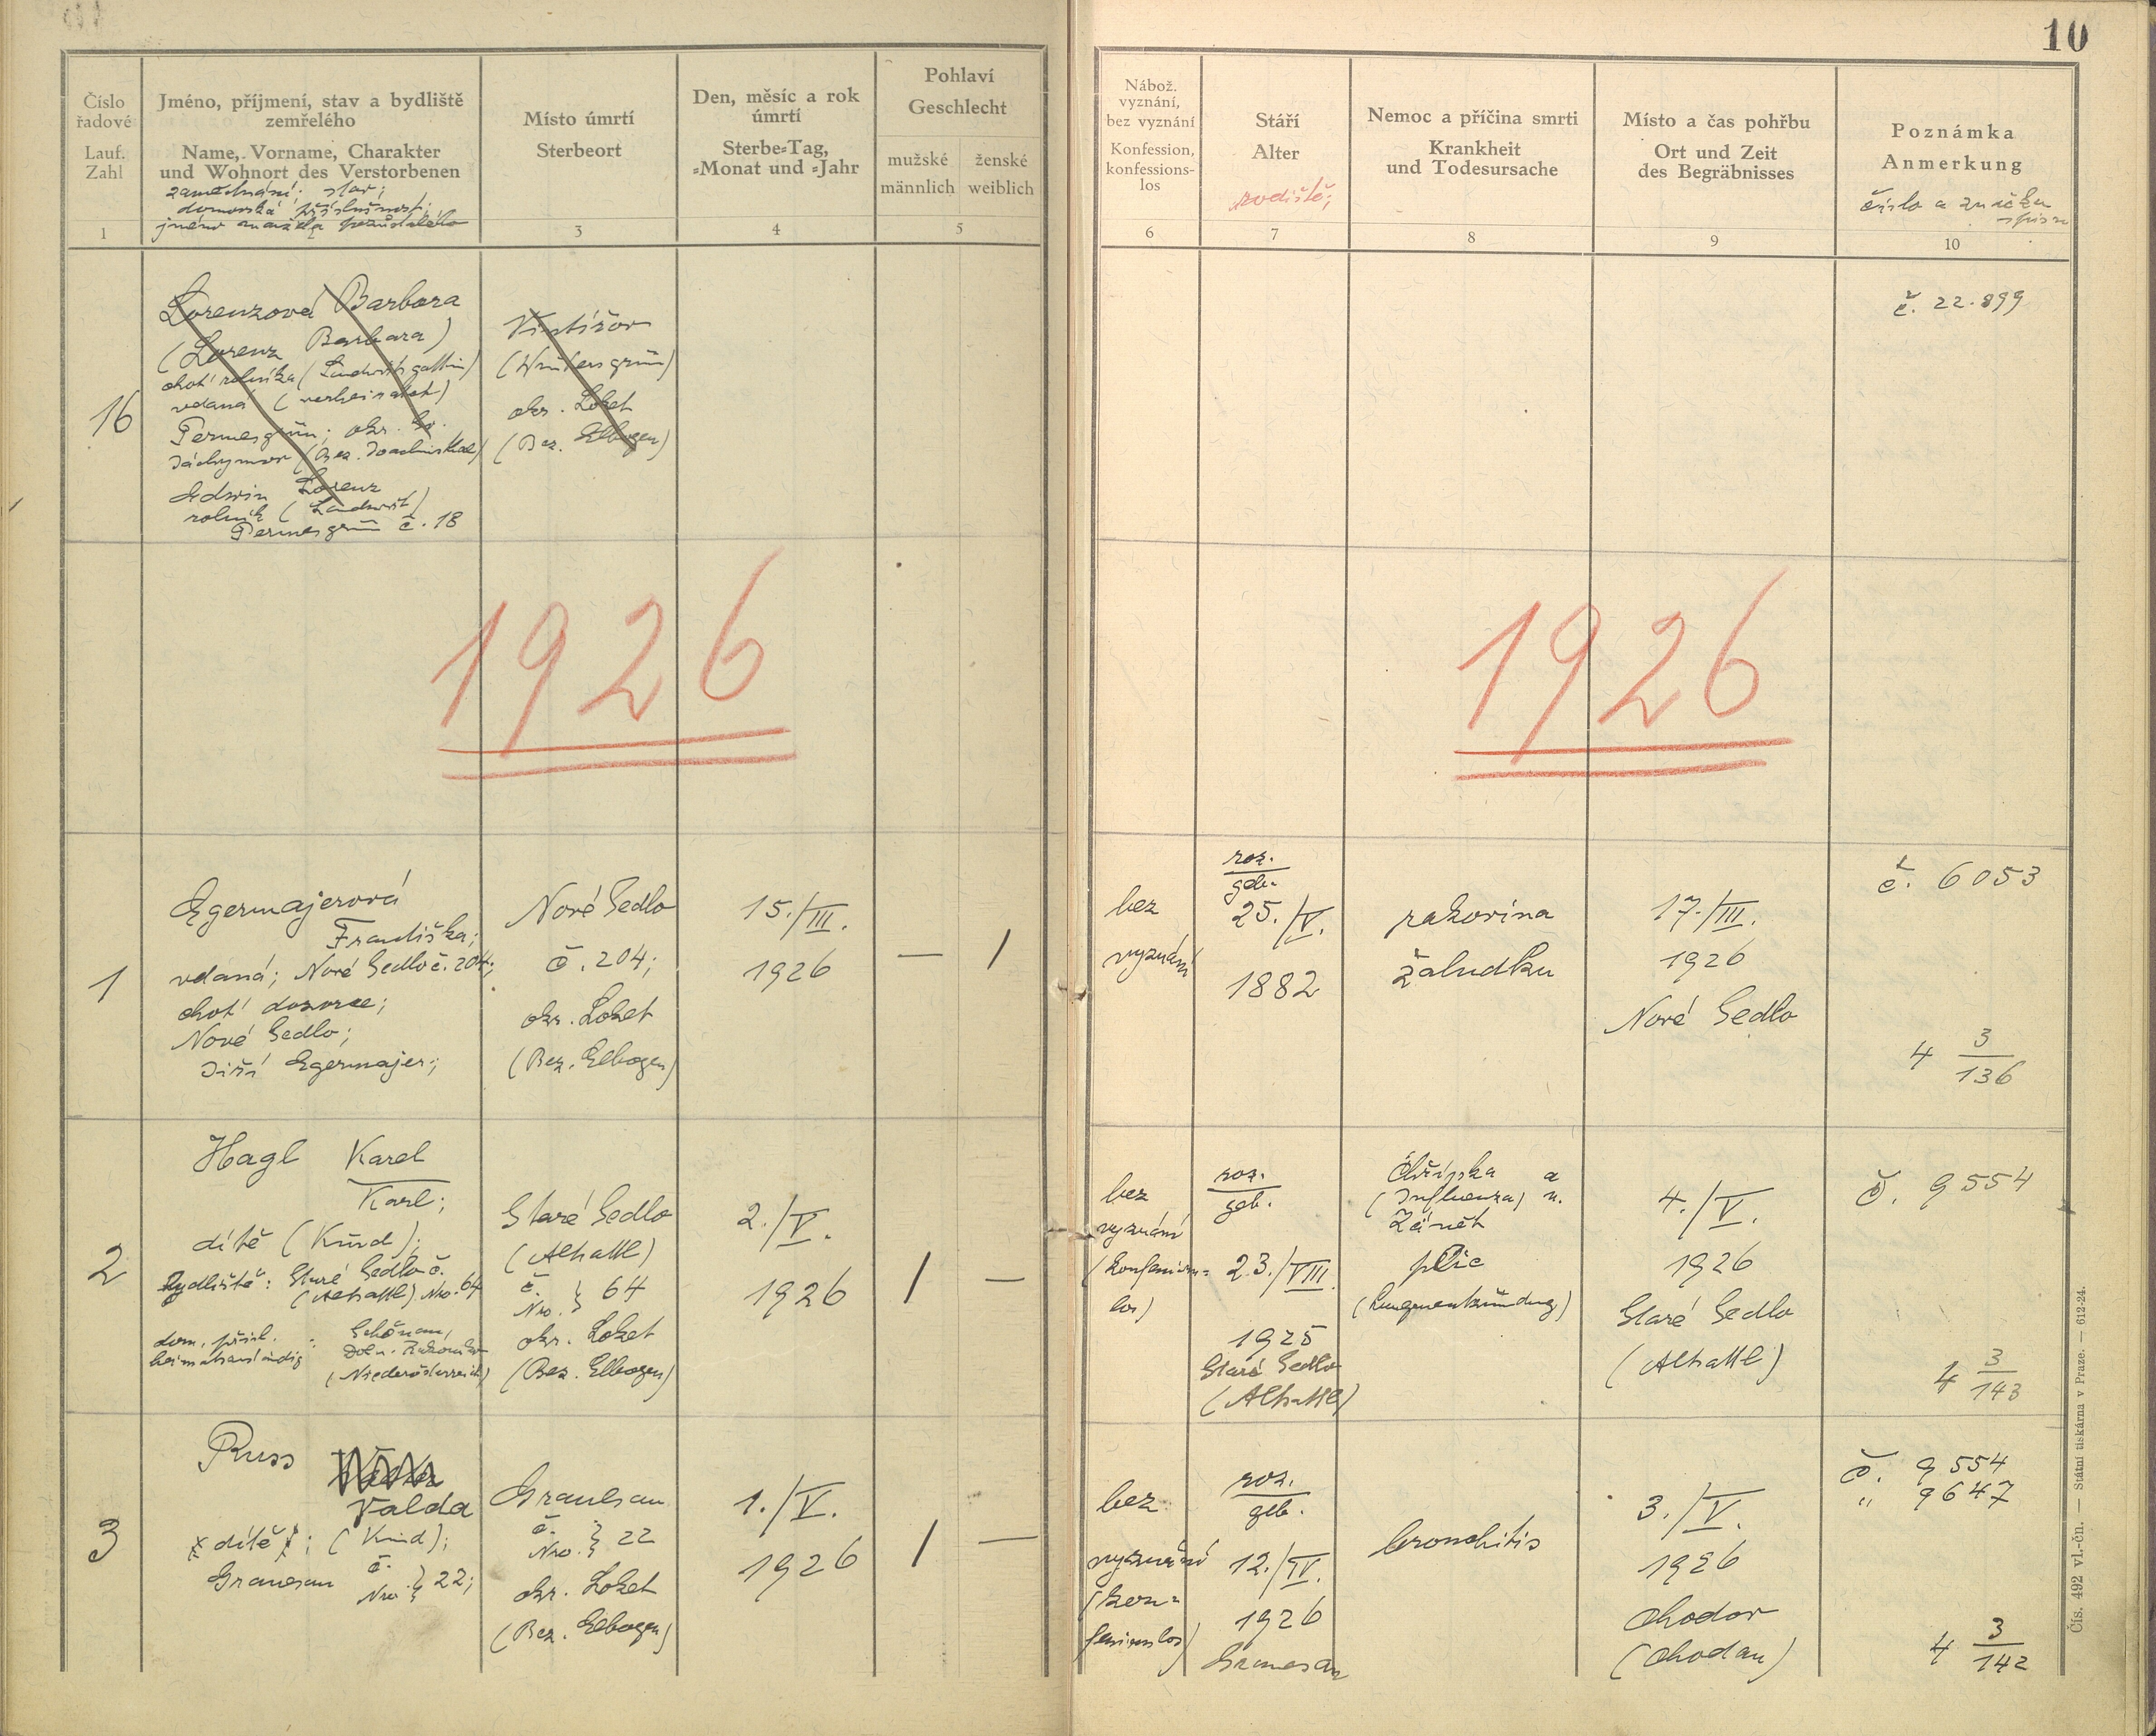 10
Číslo
řadové
Lauf.
Zahl
1
Jméno, příjmení, stav a bydliště
zemřelého
Name, Vorname, Charakter
und Wohnort des Verstorbenen
zaměstnání; stav;
domovská příslušnost;
jméno manžela pozůstalého
Místo úmrtí
Sterbeort
3
Den, měsíc a rok
úmrtí
Sterbe-Tag,
-Monat und -Jahr
4
Pohlaví
Geschlecht
mužské
männlich
ženské
weiblich
5
Nábož.
vyznání,
bez vyznání
Konfession,
konfessions-
los
6
Stáří
Alter
rodiště;
7
Nemoc a příčina smrti
Krankheit
und Todesursache
8
Místo a čas pohřbu
Ort und Zeit
des Begräbnisses
9
Poznámka
Anmerkung
číslo a značka
spisu
10
16
Lorenzová Barbora
(Lorenz Barbara)
choť rolníka (Landwirtsgattin)
vdaná (verheiratet)
Permesgrün; okr. Sv.
Jáchymov (Bez. Joachimsthal)
Edwin Lorenz
rolník (Landwirt)
Permesgrün č. 18
Vintířov
(Wintersgrün)
okr. Loket
(Bez. Elbogen)
č. 22.899
1926
1926
1
Egermajerová
Františka;
vdaná; Nové Sedlo č. 204;
choť dozorce;
Nové Sedlo;
Jiří Egermajer;
Nové Sedlo
č. 204;
okr. Loket
(Bez. Elbogen)
15./III.
1926
— /
bez
vyznání
roz.
geb.
25./V.
1882
rakovina
žaludku
17./III.
1926
Nové Sedlo
č. 6053
4 3/136
2
Hagl Karel
Karl;
dítě (Kind);
Bydliště: Staré Sedlo č.
(Altsattl) Nro. 64
dom. přísl.
heimatszuständig :
Schönau,
Doln. Rakousko
(Niederösterreich)
Staré Sedlo
(Altsattl)
č.
Nro. } 64
okr. Loket
(Bez. Elbogen)
2./V.
1926
/ —
bez
vyznání
(konfessions-
los)
roz.
geb.
23./VIII.
1925
Staré Sedlo
(Altsattl)
Chřipka a
(Influenza) u.
Zánět
plic
(Lungenentzündung)
4./V.
1926
Staré Sedlo
(Altsattl)
č. 9554
4 3/143
3
Russ
Valda
dítě; (Kind);
Granesau č.
Nro. } 22;
Granesau
č.
Nro. } 22
okr. Loket
(Bez. Elbogen)
1./V.
1926
/ —
bez
vyznání
(kon-
fessionslos)
roz.
geb.
12./IV.
1926
Granesau
bronchitis
3./V.
1926
Chodov
(Chodau)
č. 9554
" 9647
4 3/142
Čís. 492 vl.-čn. — Státní tiskárna v Praze. — 612-24.